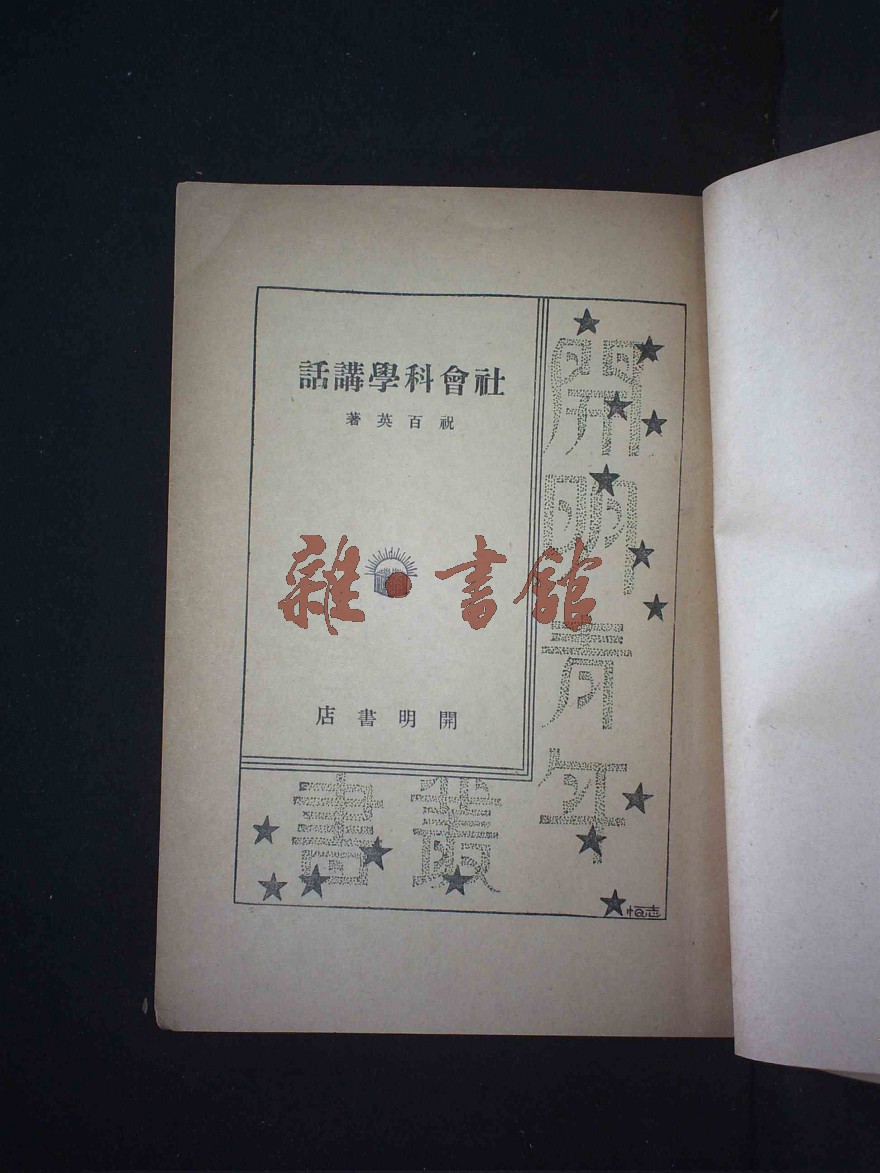 社會科學講話
祝百英著
開明書店
開明青年
叢書
志恒
雜·書館